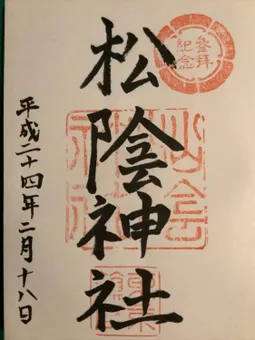 参拝
紀念
松陰神社
平成二十四年二月十八日